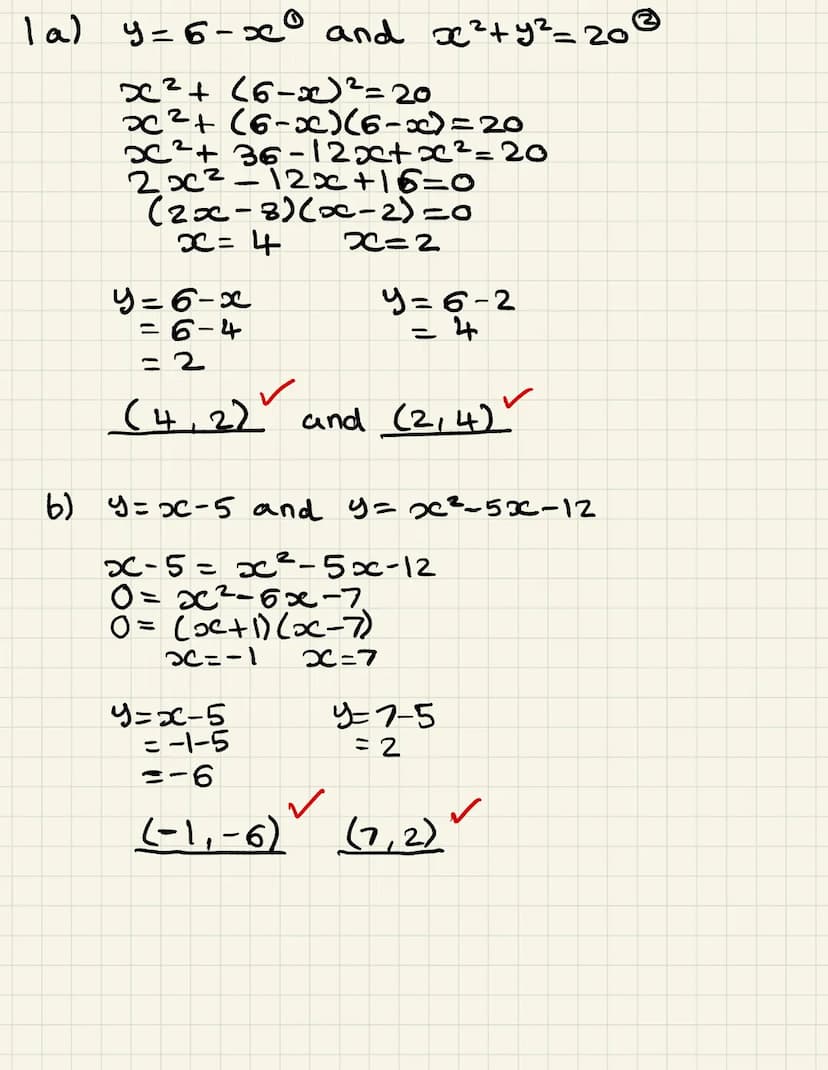 1a) y=6-x① and x²+y²=20②
x²+(6-x)²=20
x²+(6-x)(6-x)=20
x²+36-12x+x²=20
2x²-12x+16=0
(2x-8)(x-2)=0
x=4 x=2
y=6-x y=6-2
=6-4 =4
=2
(4,2)✓ and (2,4)✓
b) y=x-5 and y=x²-5x-12
x-5=x²-5x-12
0=x²-6x-7
0=(x+1)(x-7)
x=-1 x=7
y=x-5 y=7-5
=-1-5 =2
=-6
(-1,-6)✓ (7,2)✓